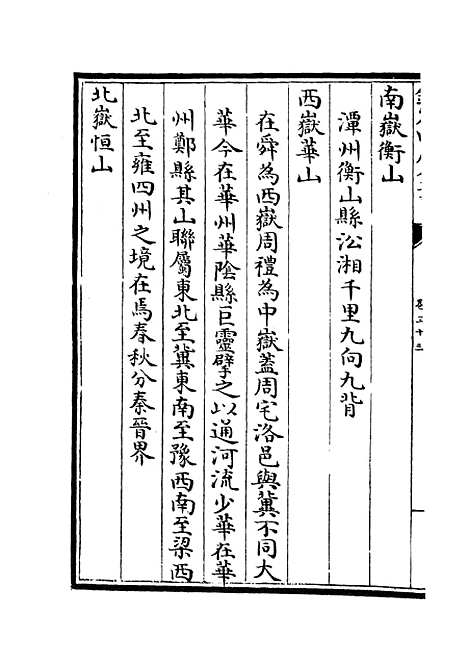 南嶽衡山
潭州衡山縣㳂湘千里九向九背
西嶽華山
在舜為西嶽周禮為中嶽蓋周宅洛邑與冀不同大
華今在華州華陰縣巨靈擘之以通河流少華在華
州鄭縣其山聯屬東北至冀東南至豫西南至梁西
北至雍四州之境在焉春秋分秦晉界
北嶽恒山